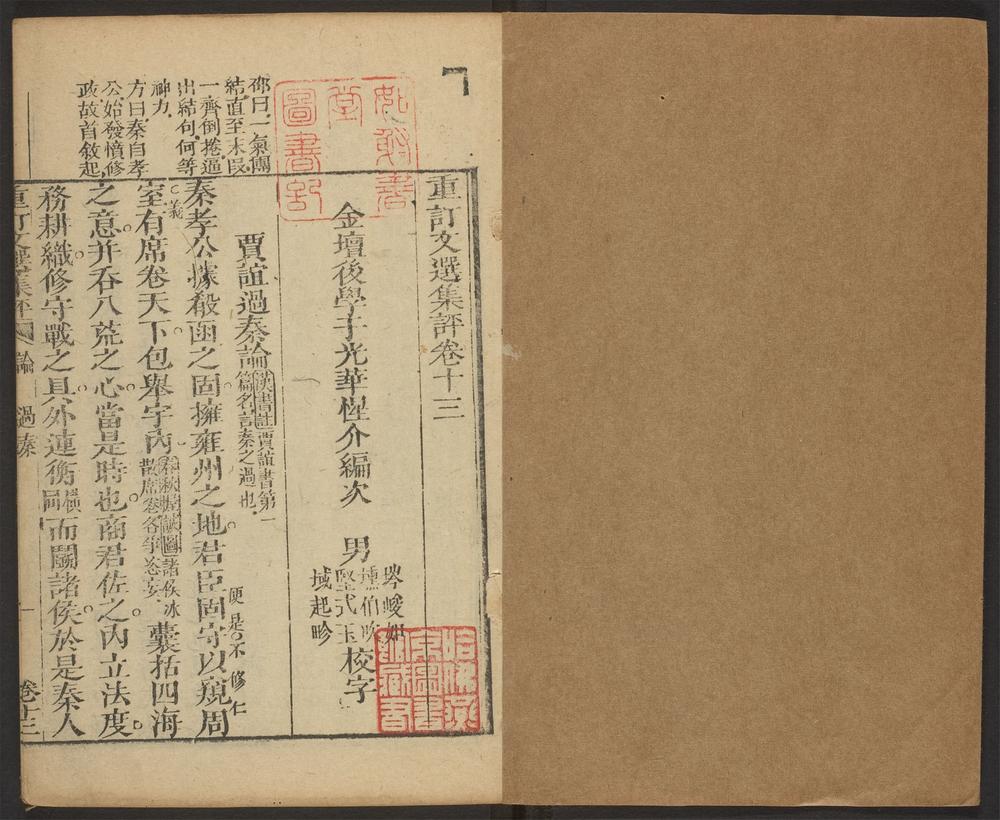 重訂文選集評卷十三
金壇後學于光華惺介編次 男
校字
賈誼過秦論
漢書註賈誼書第一
篇名言秦之過也
秦孝公據殽函之固擁雍州之地君臣固守以窺周
便是不修仁
義
室有席卷天下包舉宇內
春秋握誠圖諸侯冰
散席卷各爭恣妄
囊括四海
之意并吞八荒之心當是時也商君佐之內立法度
務耕織修守戰之具外連衡
而鬬諸侯於是秦人
邵曰一氣團
結直至末段
一齊倒捲逼
出結句何等
神力
方曰秦自孝
公始發憤修
政故首敘起
重訂文選集評
論
過秦
一
卷十三
圖書記